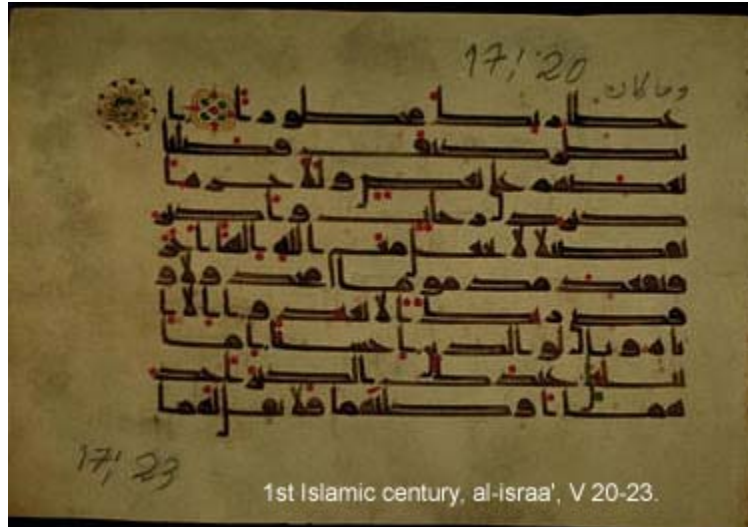 17,' 20
وما كان
عطا ربك محظورا ا
نظر كيف فضلنا
بعضهم على بعض وللاخرة ا
كبر درجت و اكبر
تفضيلا لا تجعل مع الله الها اخر
فتقعد مذموما مخذولا و
قضى ربك الا تعبدوا الا ا
ياه وبالولدين احسنا اما
يبلغن عندك الكبر احد
هما او كلهما فلا تقل لهما
17,' 23
1st Islamic century, al-israa', V 20-23.